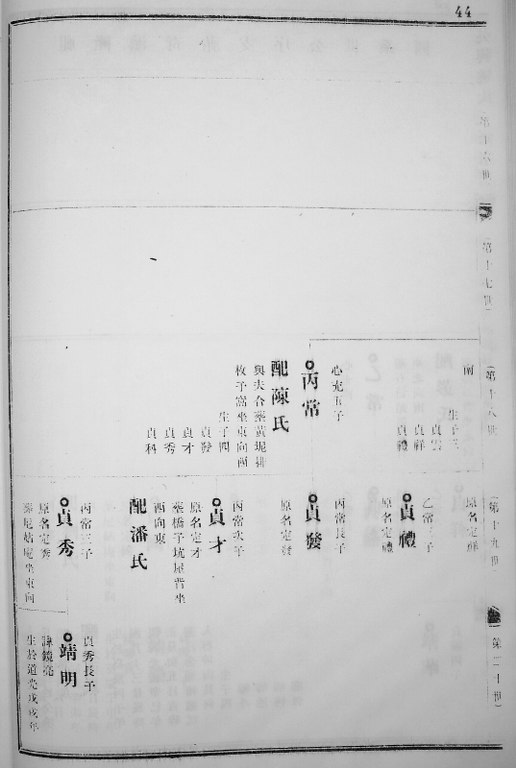 44
第十六世
第十七世
第十八世
第十九世
第二十世
南
生子三
貞雲
貞祥
貞禮
心充五子
丙常
配陳氏
與夫合葬黃坭排
枚子窩坐東向西
生子四
貞發
貞才
貞秀
貞科
原名定祥
乙常三子
貞禮
原名定禮
丙常長子
貞發
原名定發
丙常次子
貞才
原名定才
葬橋子坑屋背坐
西向東
配潘氏
丙常三子
貞秀
原名定秀
葬尼姑庵坐東向
貞秀長子
靖明
諱鏡亮
生於道光戊戌年